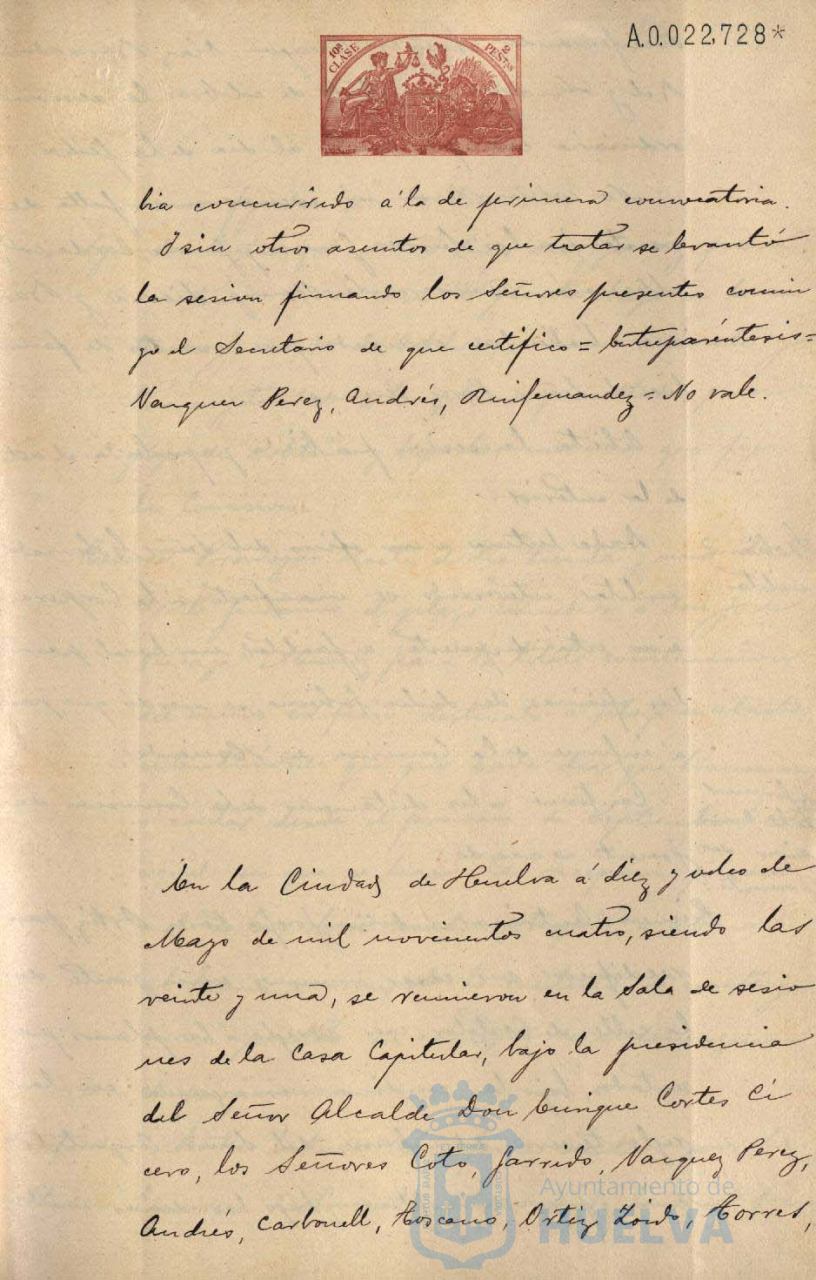 A.0.022,728*
10ª CLASE
2 PESTAS
bia concurrido á la de primera convocatoria.
Y sin otros asuntos de que tratar se levantó
la sesion firmando los Señores presentes conmi
go el Secretario de que certifico = Entreparéntesis =
Vazquez Perez, Andrés, = No vale.
En la Ciudad de Huelva á diez y ocho de
Mayo de mil novecientos cuatro, siendo las
veinte y una, se reunieron en la Sala de sesio
nes de la Casa Capitular, bajo la presidencia
del Señor Alcalde Don Enrique Cortes Ci
cero, los Señores Coto, Garrido, Vazquez Perez,
Andrés, Carbonell, Toscano, Ortiz, Zordo, Torres,
Ayuntamiento de
HUELVA